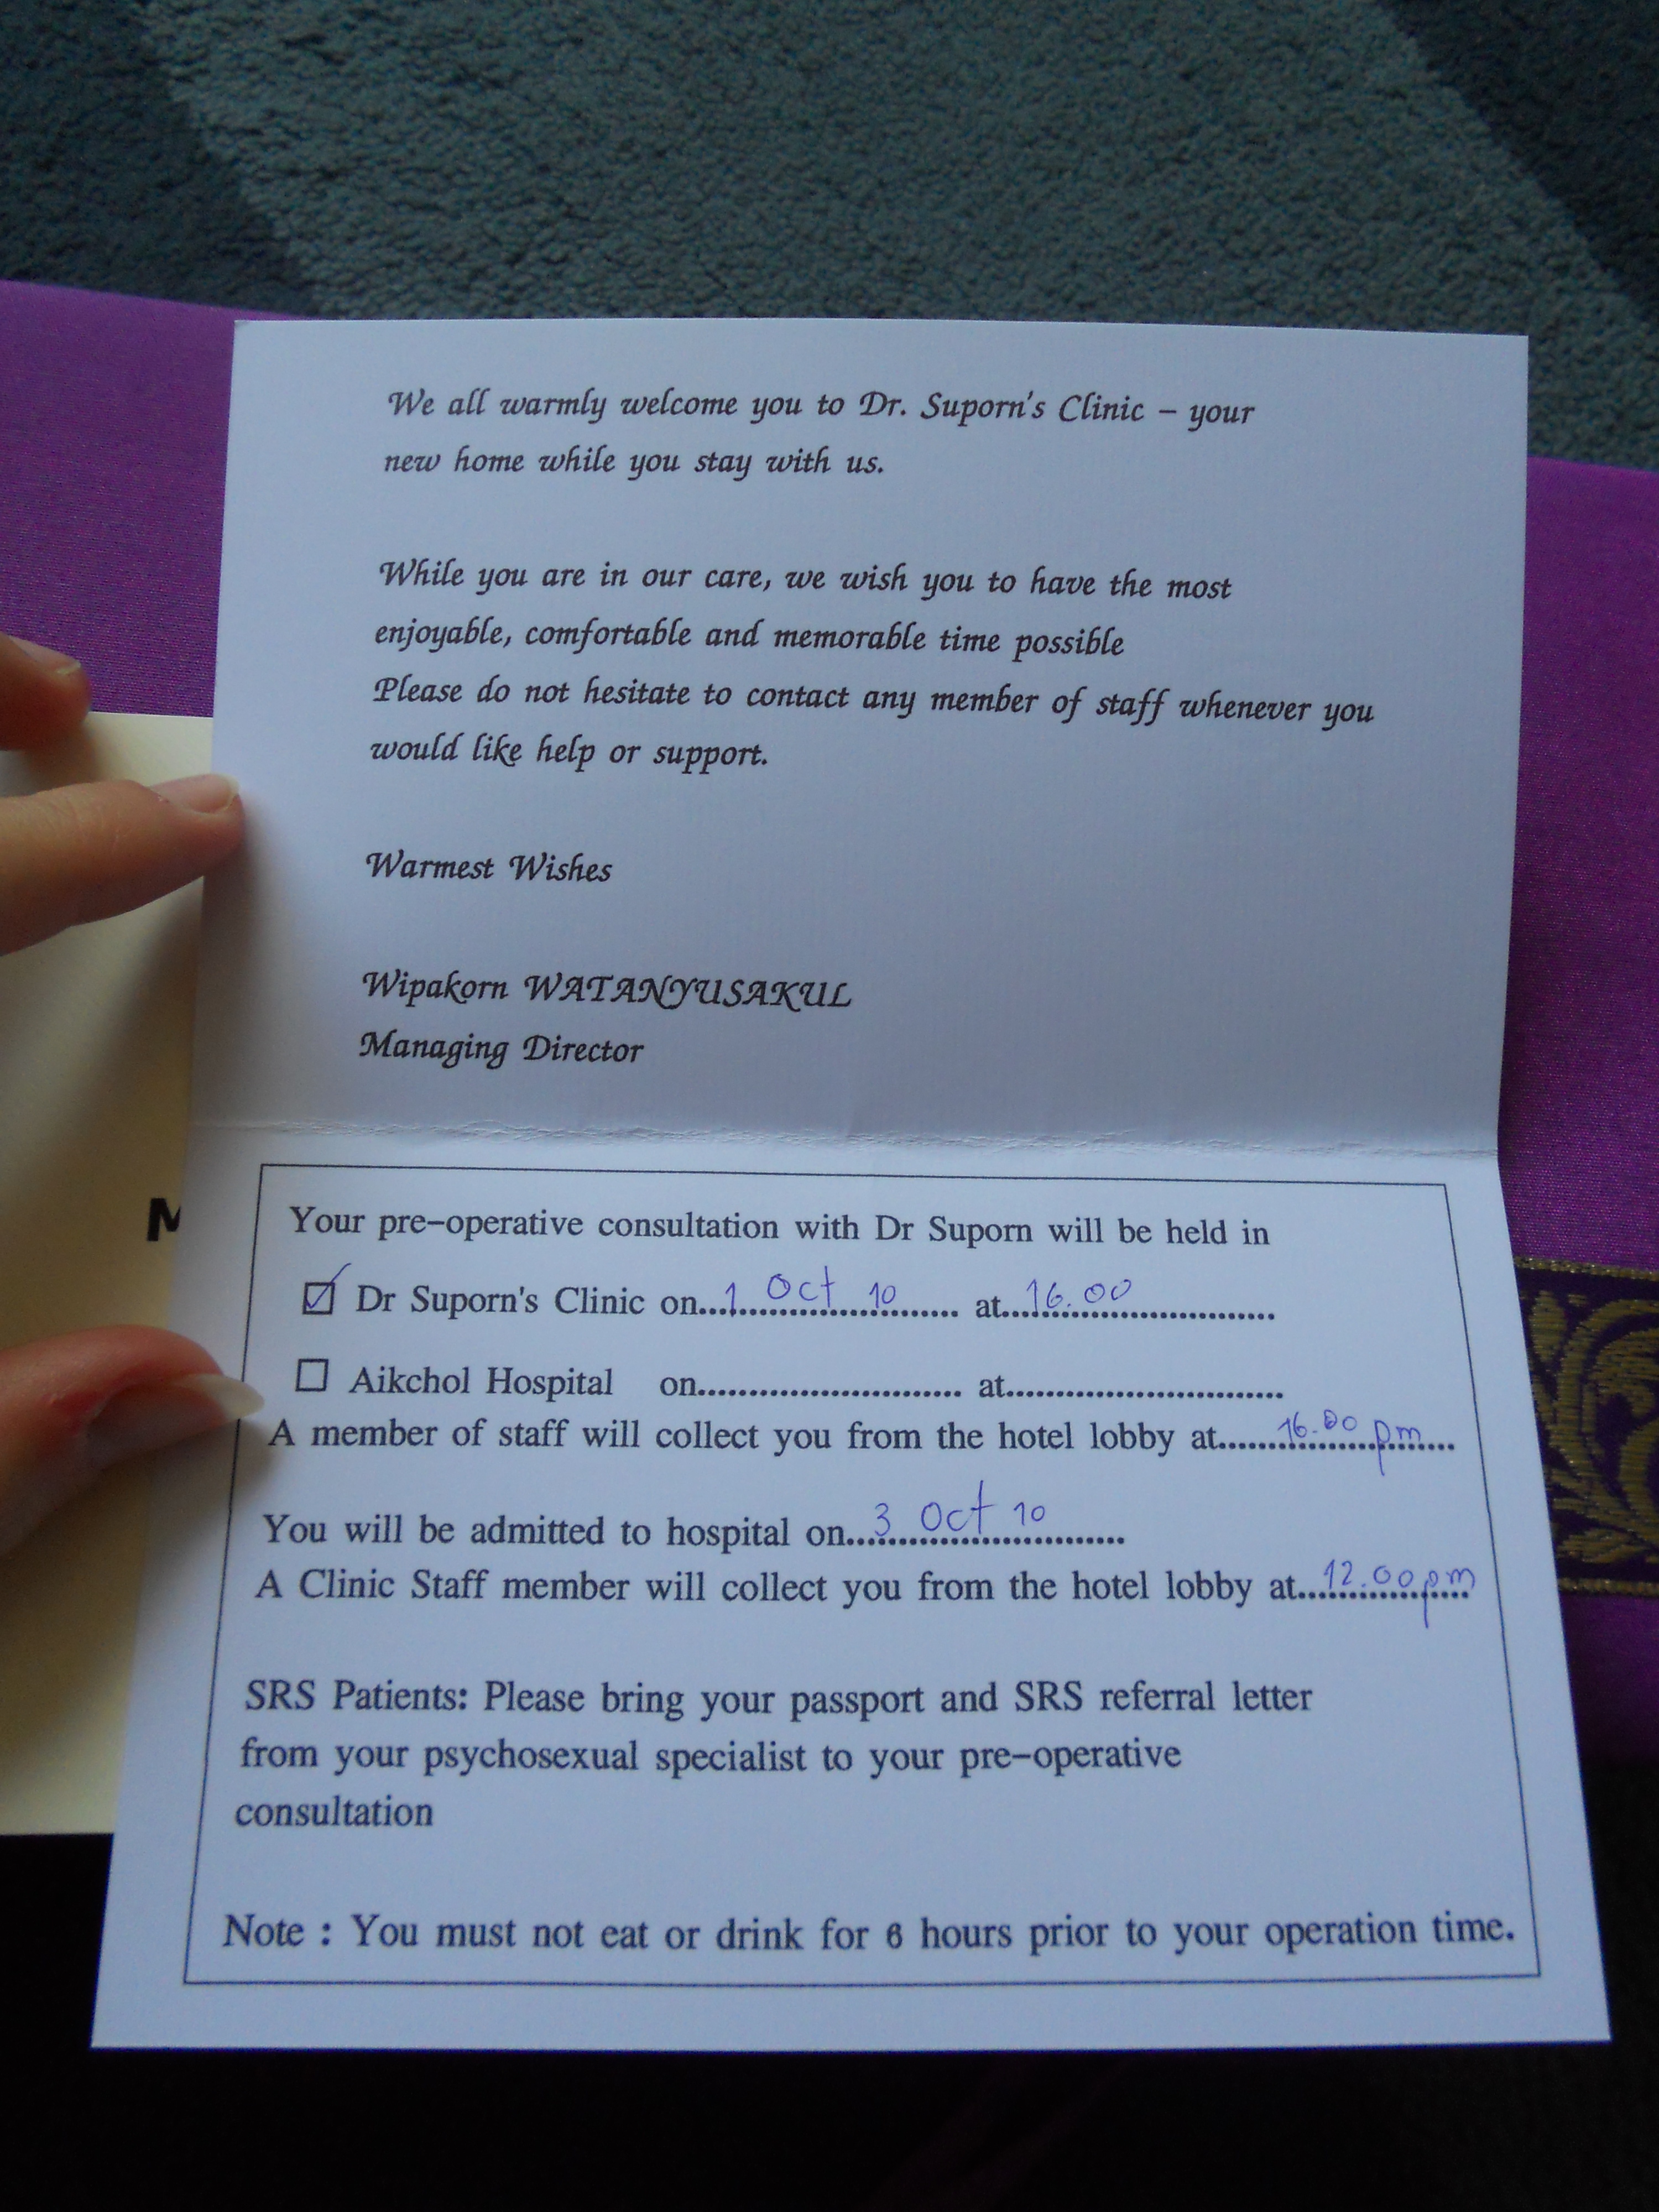 We all warmly welcome you to Dr. Suporn's Clinic – your
new home while you stay with us.
While you are in our care, we wish you to have the most
enjoyable, comfortable and memorable time possible
Please do not hesitate to contact any member of staff whenever you
would like help or support.
Warmest Wishes
Wipakorn WATANYUSAKUL
Managing Director
M
Your pre-operative consultation with Dr Suporn will be held in
☑ Dr Suporn's Clinic on...1 Oct 10...... at...16.00..................
☐ Aikchol Hospital on.......................... at...........................
A member of staff will collect you from the hotel lobby at......16.00 pm...
You will be admitted to hospital on...3 Oct 10........
A Clinic Staff member will collect you from the hotel lobby at...12.00pm
SRS Patients: Please bring your passport and SRS referral letter
from your psychosexual specialist to your pre-operative
consultation
Note : You must not eat or drink for 6 hours prior to your operation time.